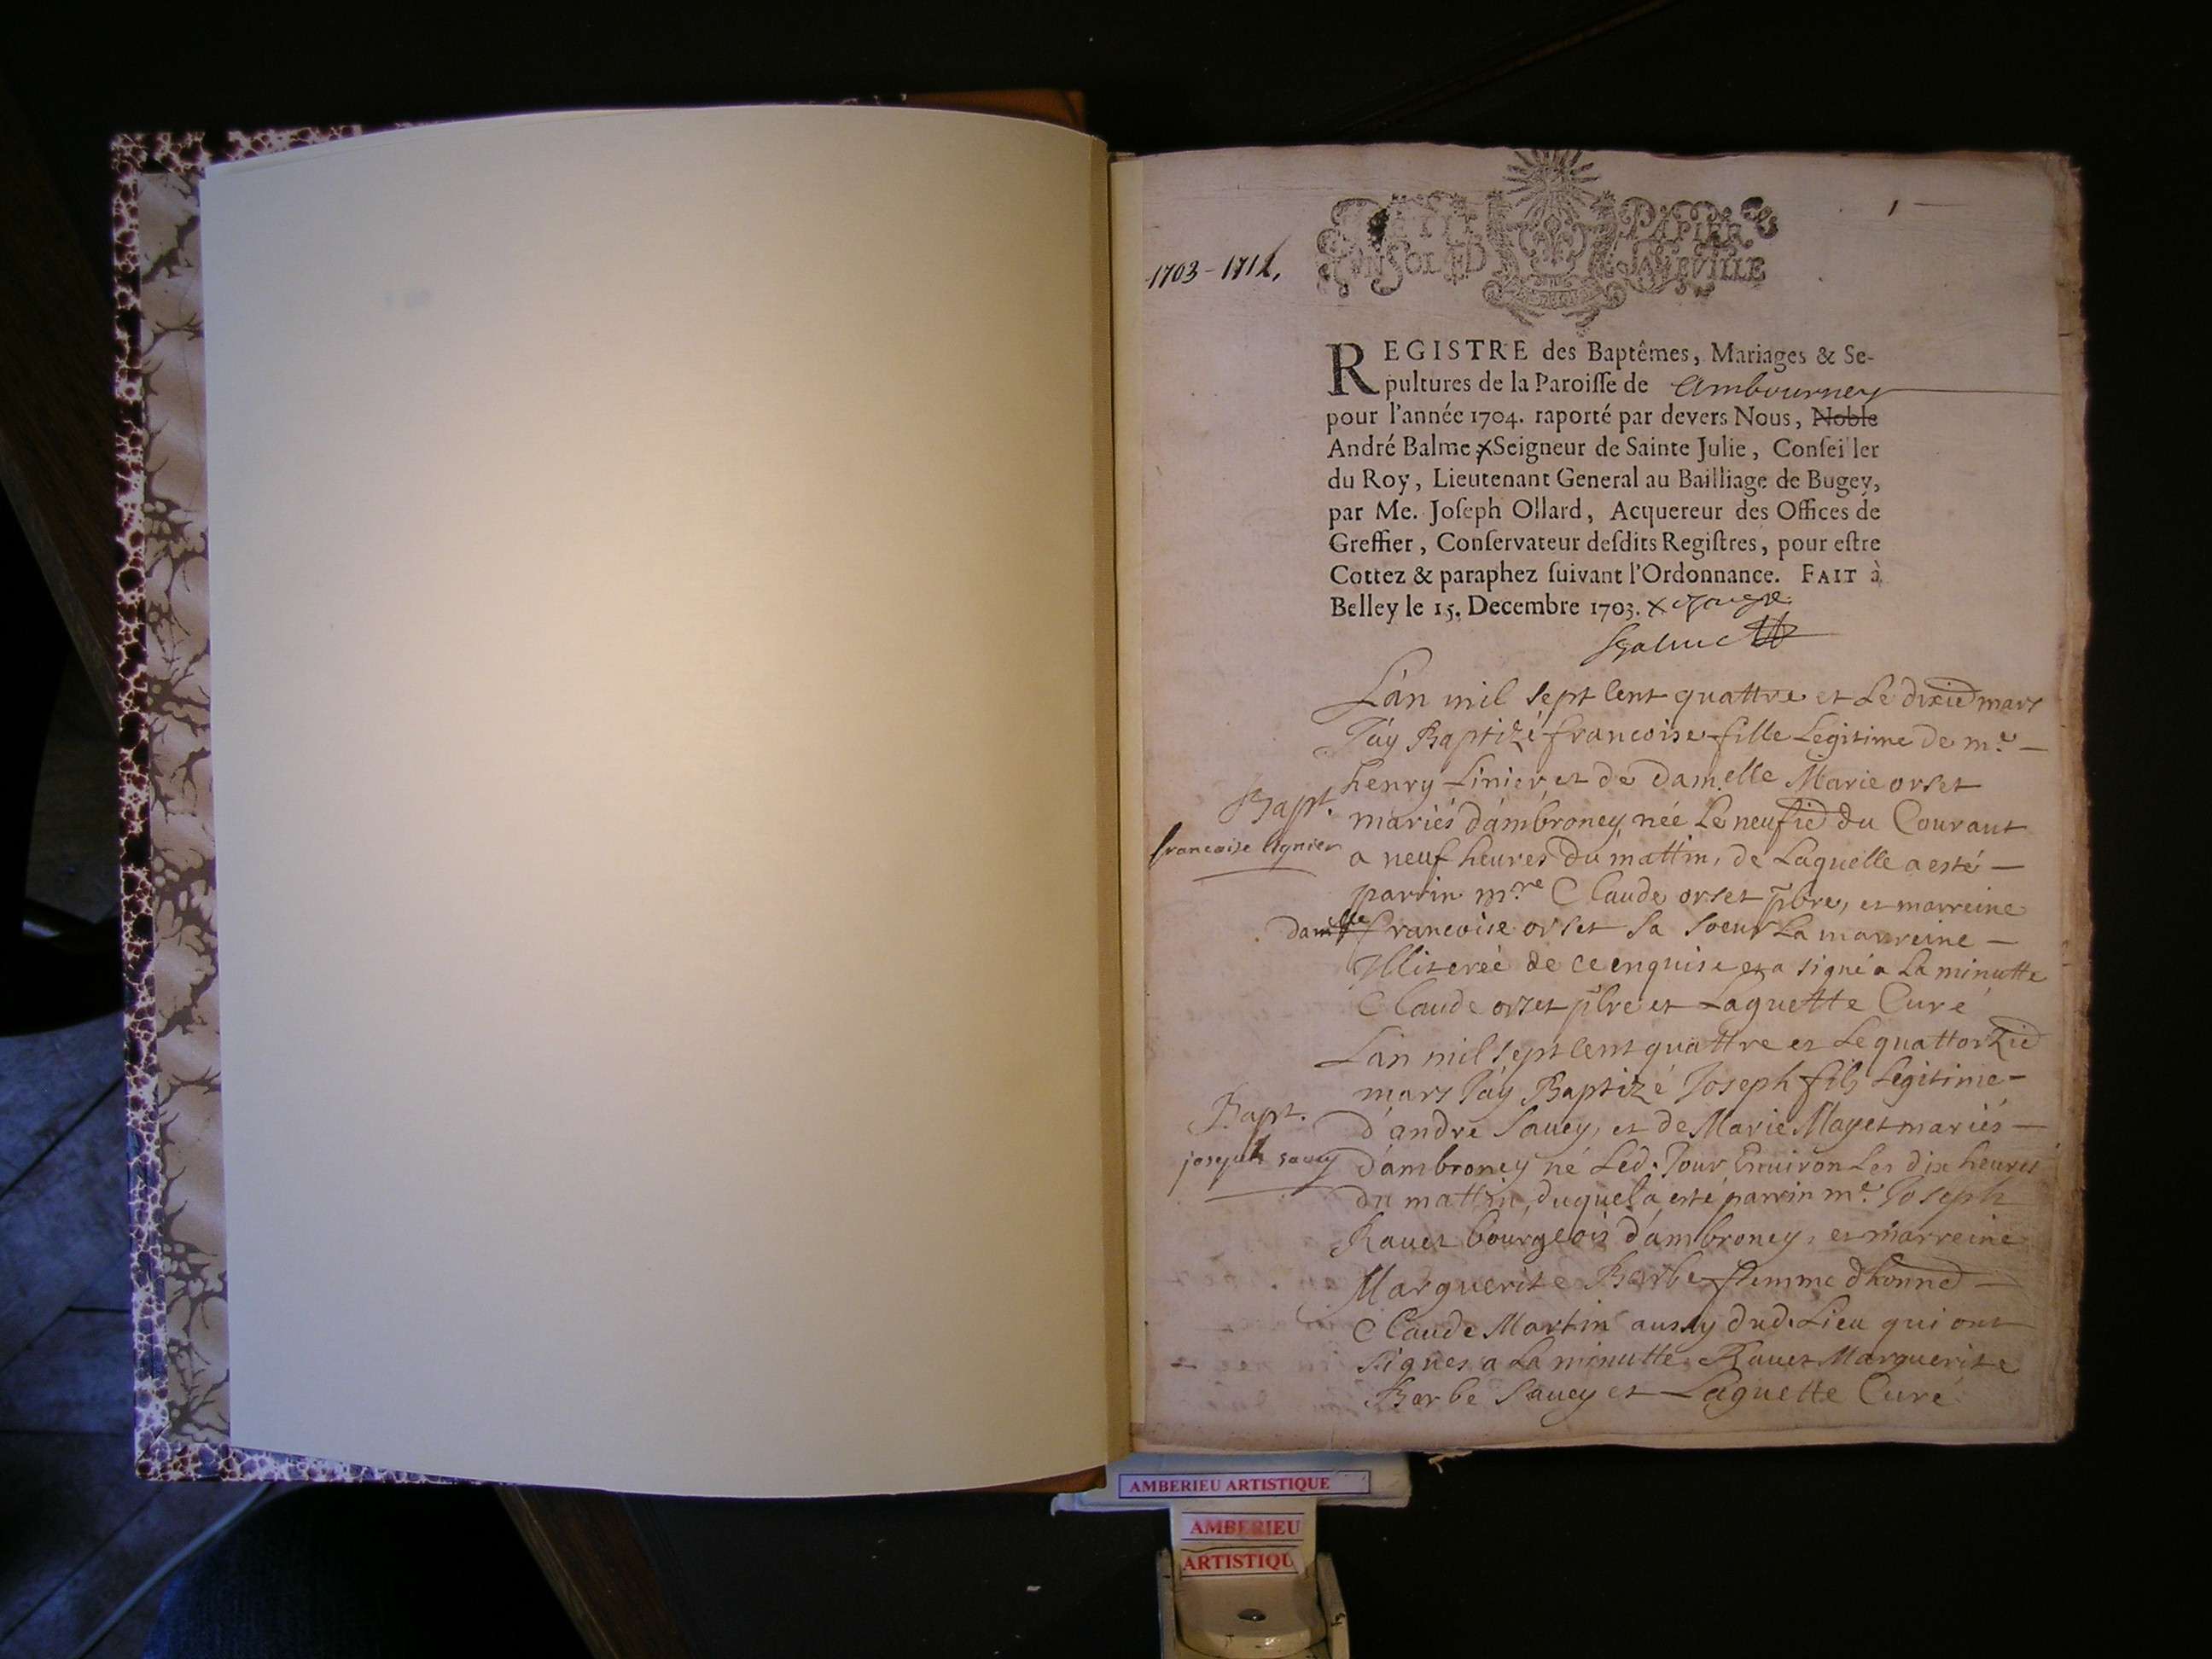 1
1703-1711.
PETIT PAPIER
UN SOL 4D LA FEVILLE
REGISTRE des Baptêmes, Mariages & Se-
pultures de la Paroisse de Ambourney
pour l'année 1704. raporté par devers Nous, Noble
André Balme x Seigneur de Sainte Julie, Conseiller
du Roy, Lieutenant General au Bailliage de Bugey,
par Me. Joseph Ollard, Acquereur des Offices de
Greffier, Conservateur desdits Registres, pour estre
Cottez & paraphez suivant l'Ordonnance. FAIT à
Belley le 15. Decembre 1703. x
Balme
L'an mil sept Cent quattre et Le dixied mars
J'ay Baptizé francoise fille Legitime de me.
henry Linier, et de Damelle Marie orset
mariés d'ambroney, née Le neufied du Courant
a neuf heures du mattin, de Laquelle a esté
parrin mre Claude orset pbre, et marreine
damlle francoise orset sa soeur La marreine
Illiterée de ce enquise et a signé a La minutte
Claude orset pbre et Laguette Curé
Bapt.
francoise lignier
L'an mil sept Cent quattre et Le quattorzied
mars J'ay Baptizé Joseph fils Legitime
d'andre Savey, et de Marie Mayet mariés
d'ambroney né Led. Jour Environ Les dix heures
du mattin, duquel a esté parrin me. Joseph
Ravet bourgeois d'ambroney, et marreine
Marguerite Barbe femme d'honned
Claude Martin aussy dud. Lieu qui ont
signés a La minutte Ravet Marguerite
Barbe Savey et Laguette Curé
Bapt.
joseph savey
AMBERIEU ARTISTIQUE
AMBERIEU
ARTISTIQU